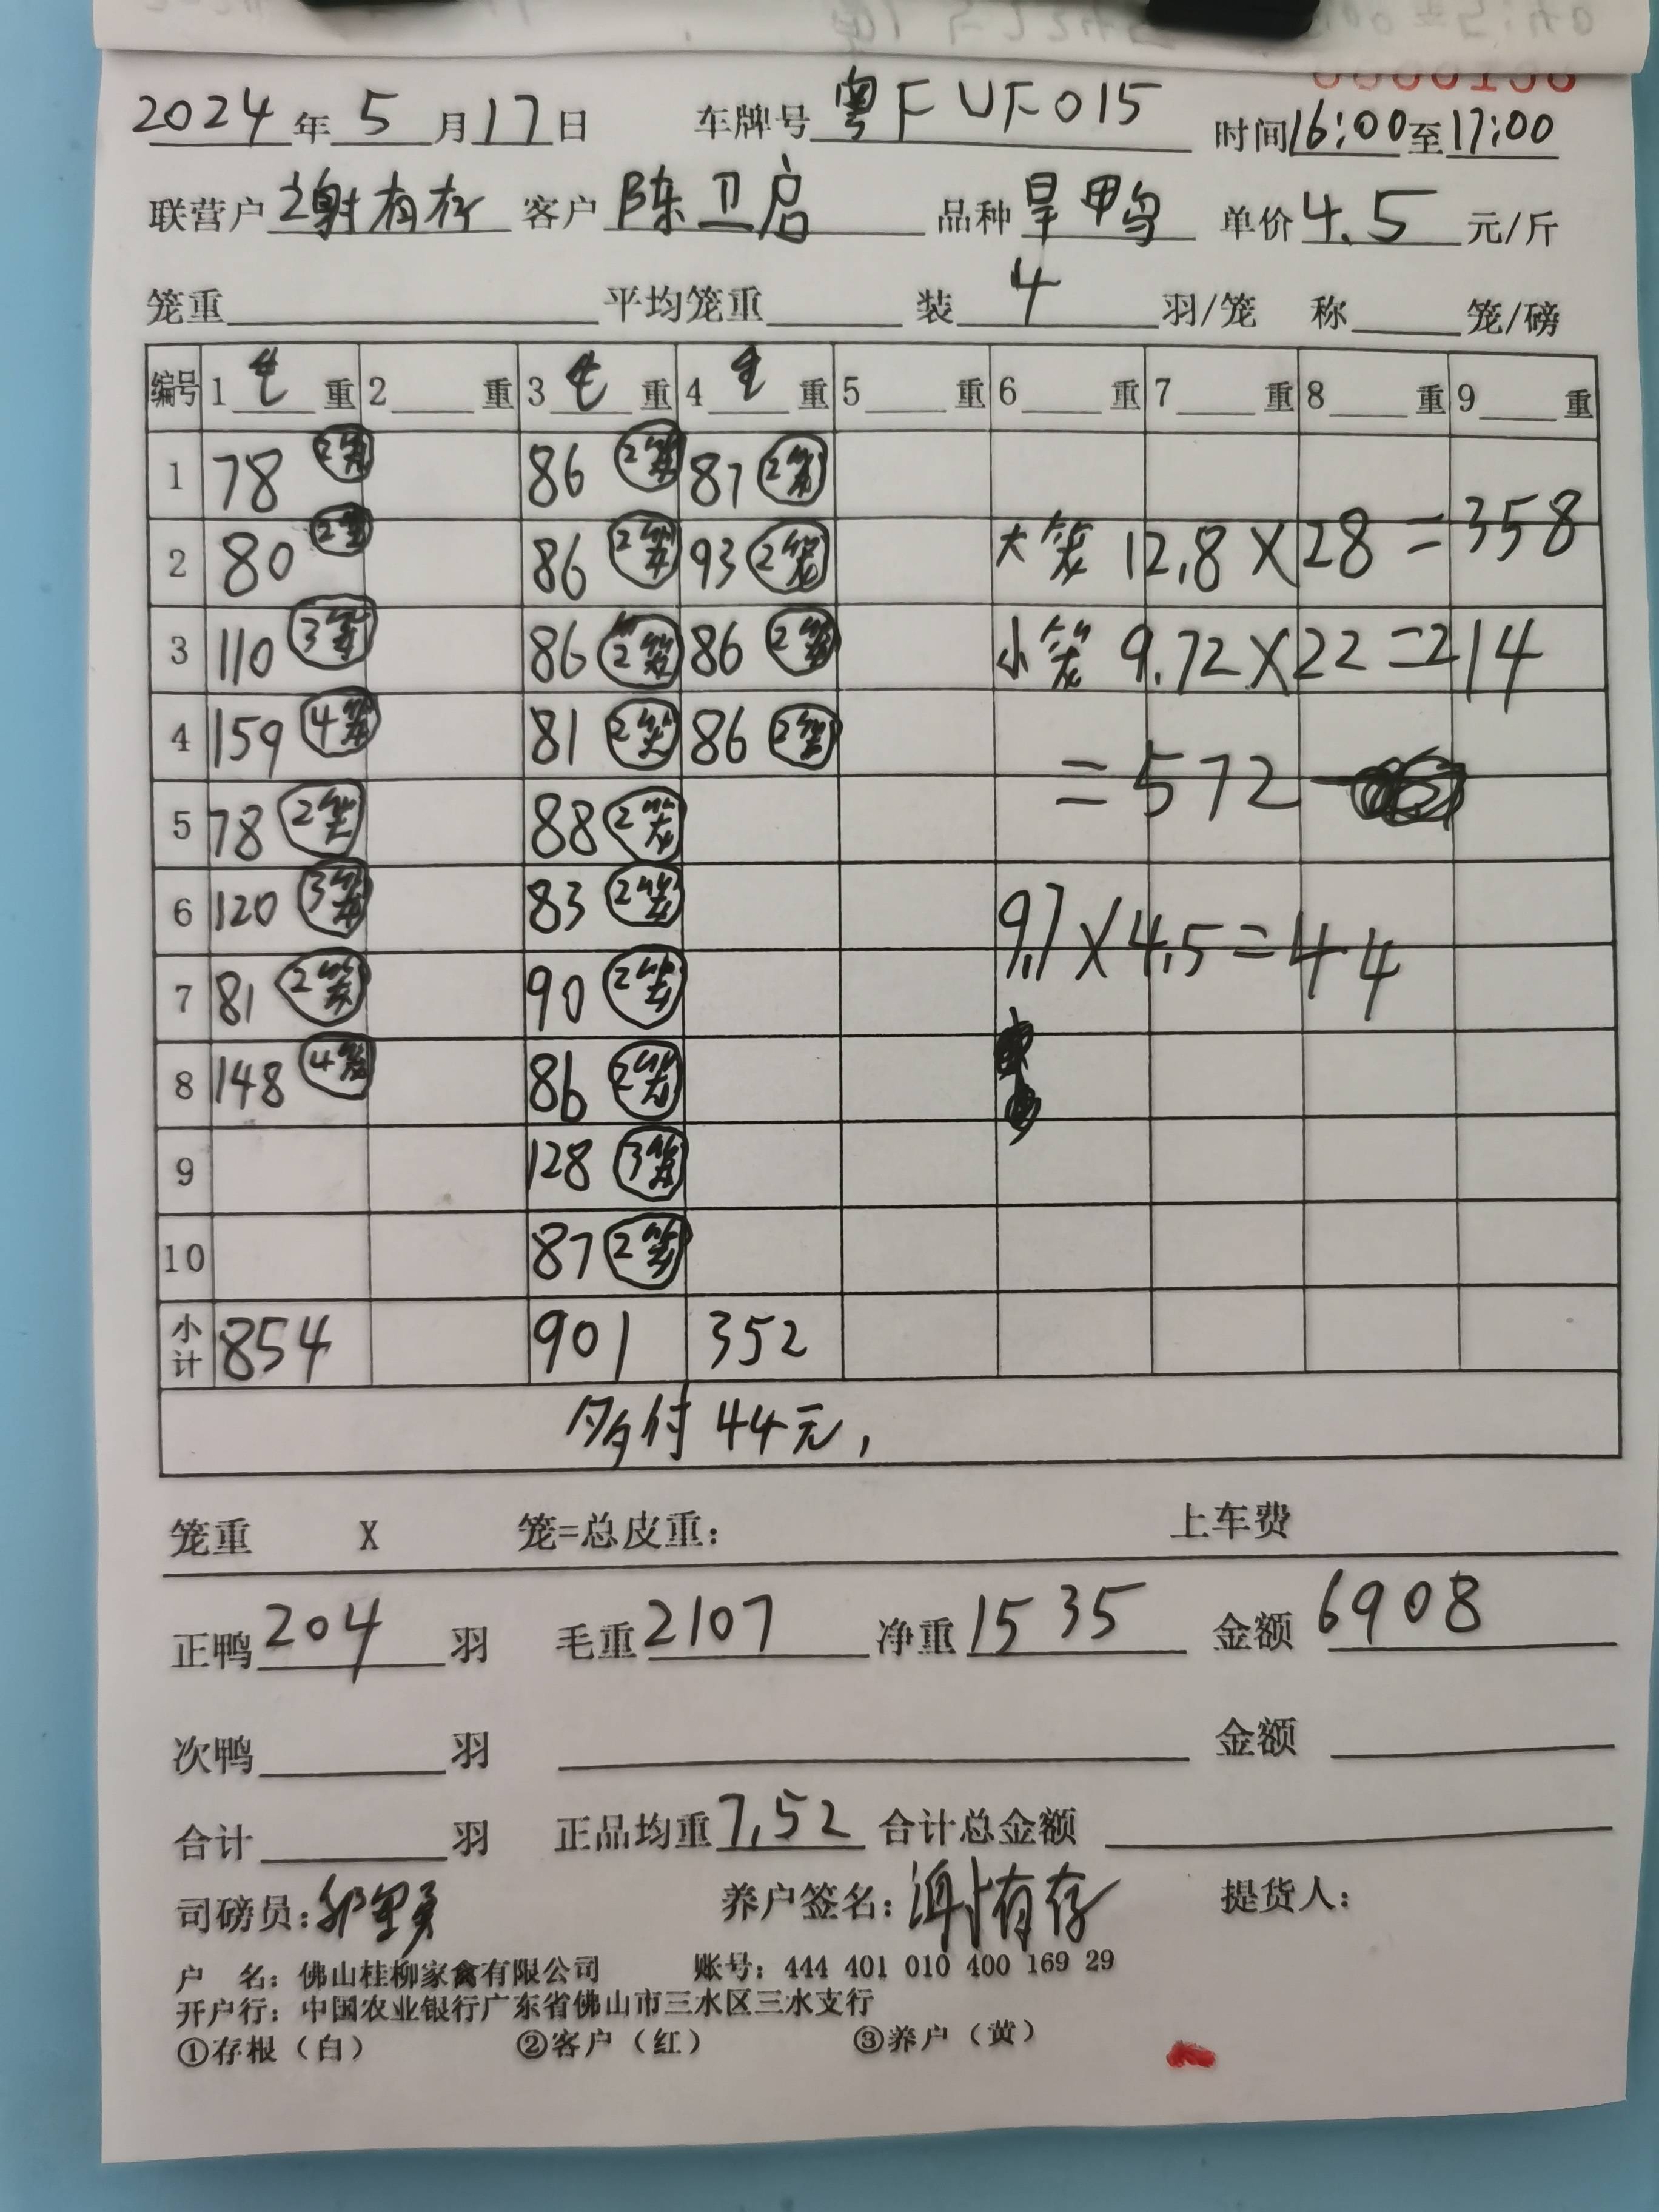 2024年5月17日 车牌号 粤FUF015 时间16:00至17:00
联营户 谢有存 客户 陈卫启 品种 旱鸭 单价 4.5 元/斤
笼重 平均笼重 装 4 羽/笼 称 笼/磅
编号 1 毛 重 2 重 3 毛 重 4 毛 重 5 重 6 重 7 重 8 重 9 重
1 78 2笼 86 2笼 87 2笼
2 80 2笼 86 2笼 93 2笼 大笼 12.8×28=358
3 110 3笼 86 2笼 86 2笼 小笼 9.72×22=214
4 159 4笼 81 2笼 86 2笼 =572
5 78 2笼 88 2笼
6 120 3笼 83 2笼
7 81 2笼 90 2笼 9.7×4.5=44
8 148 4笼 86 2笼
9 128 3笼
10 87 2笼
小计 854 901 352
多付44元,
笼重 X 笼=总皮重: 上车费
正鸭 204 羽 毛重 2107 净重 1535 金额 6908
次鸭 羽 金额
合计 羽 正品均重 7.52 合计总金额
司磅员: 养户签名: 谢有存 提货人:
户 名: 佛山桂柳家禽有限公司 账号: 444 401 010 400 169 29
开户行: 中国农业银行广东省佛山市三水区三水支行
①存根（白） ②客户（红） ③养户（黄）